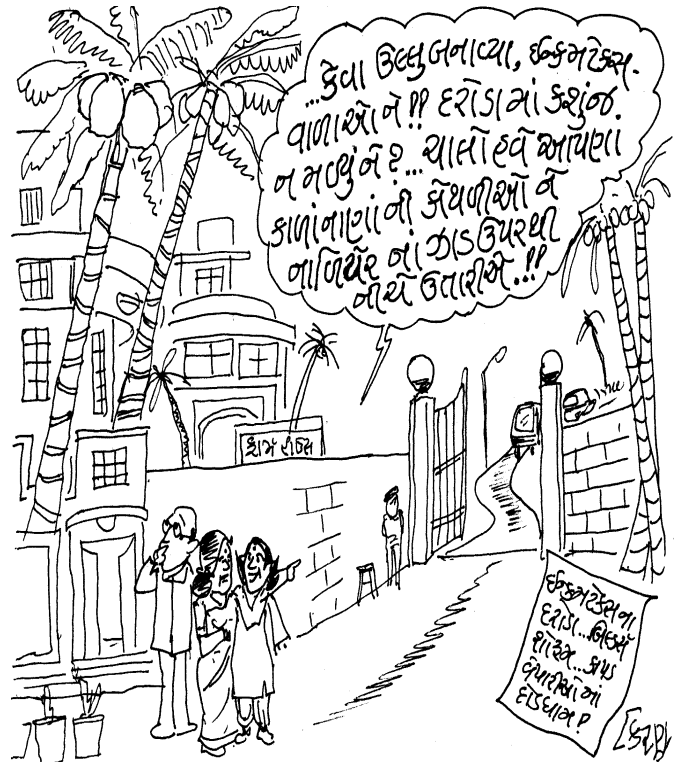 ...કેવા ઉલ્લુ બનાવ્યા, ઈન્કમટેક્સ-
વાળાઓને!! દરોડામાં કશુંજ
ન મળ્યું ને?... ચાલો હવે આપણા
કાળાંનાણાંની કોથળીઓને
નાળિયેરનાં ઝાડ ઉપરથી
નીચે ઉતારીએ..!!
ફાર્મ હાઉસ
ઈન્કમટેક્સના
દરોડા...બિલ્ડર્સ
શોરૂમ...કાપડ
વેપારીઓમાં
દોડધામ!